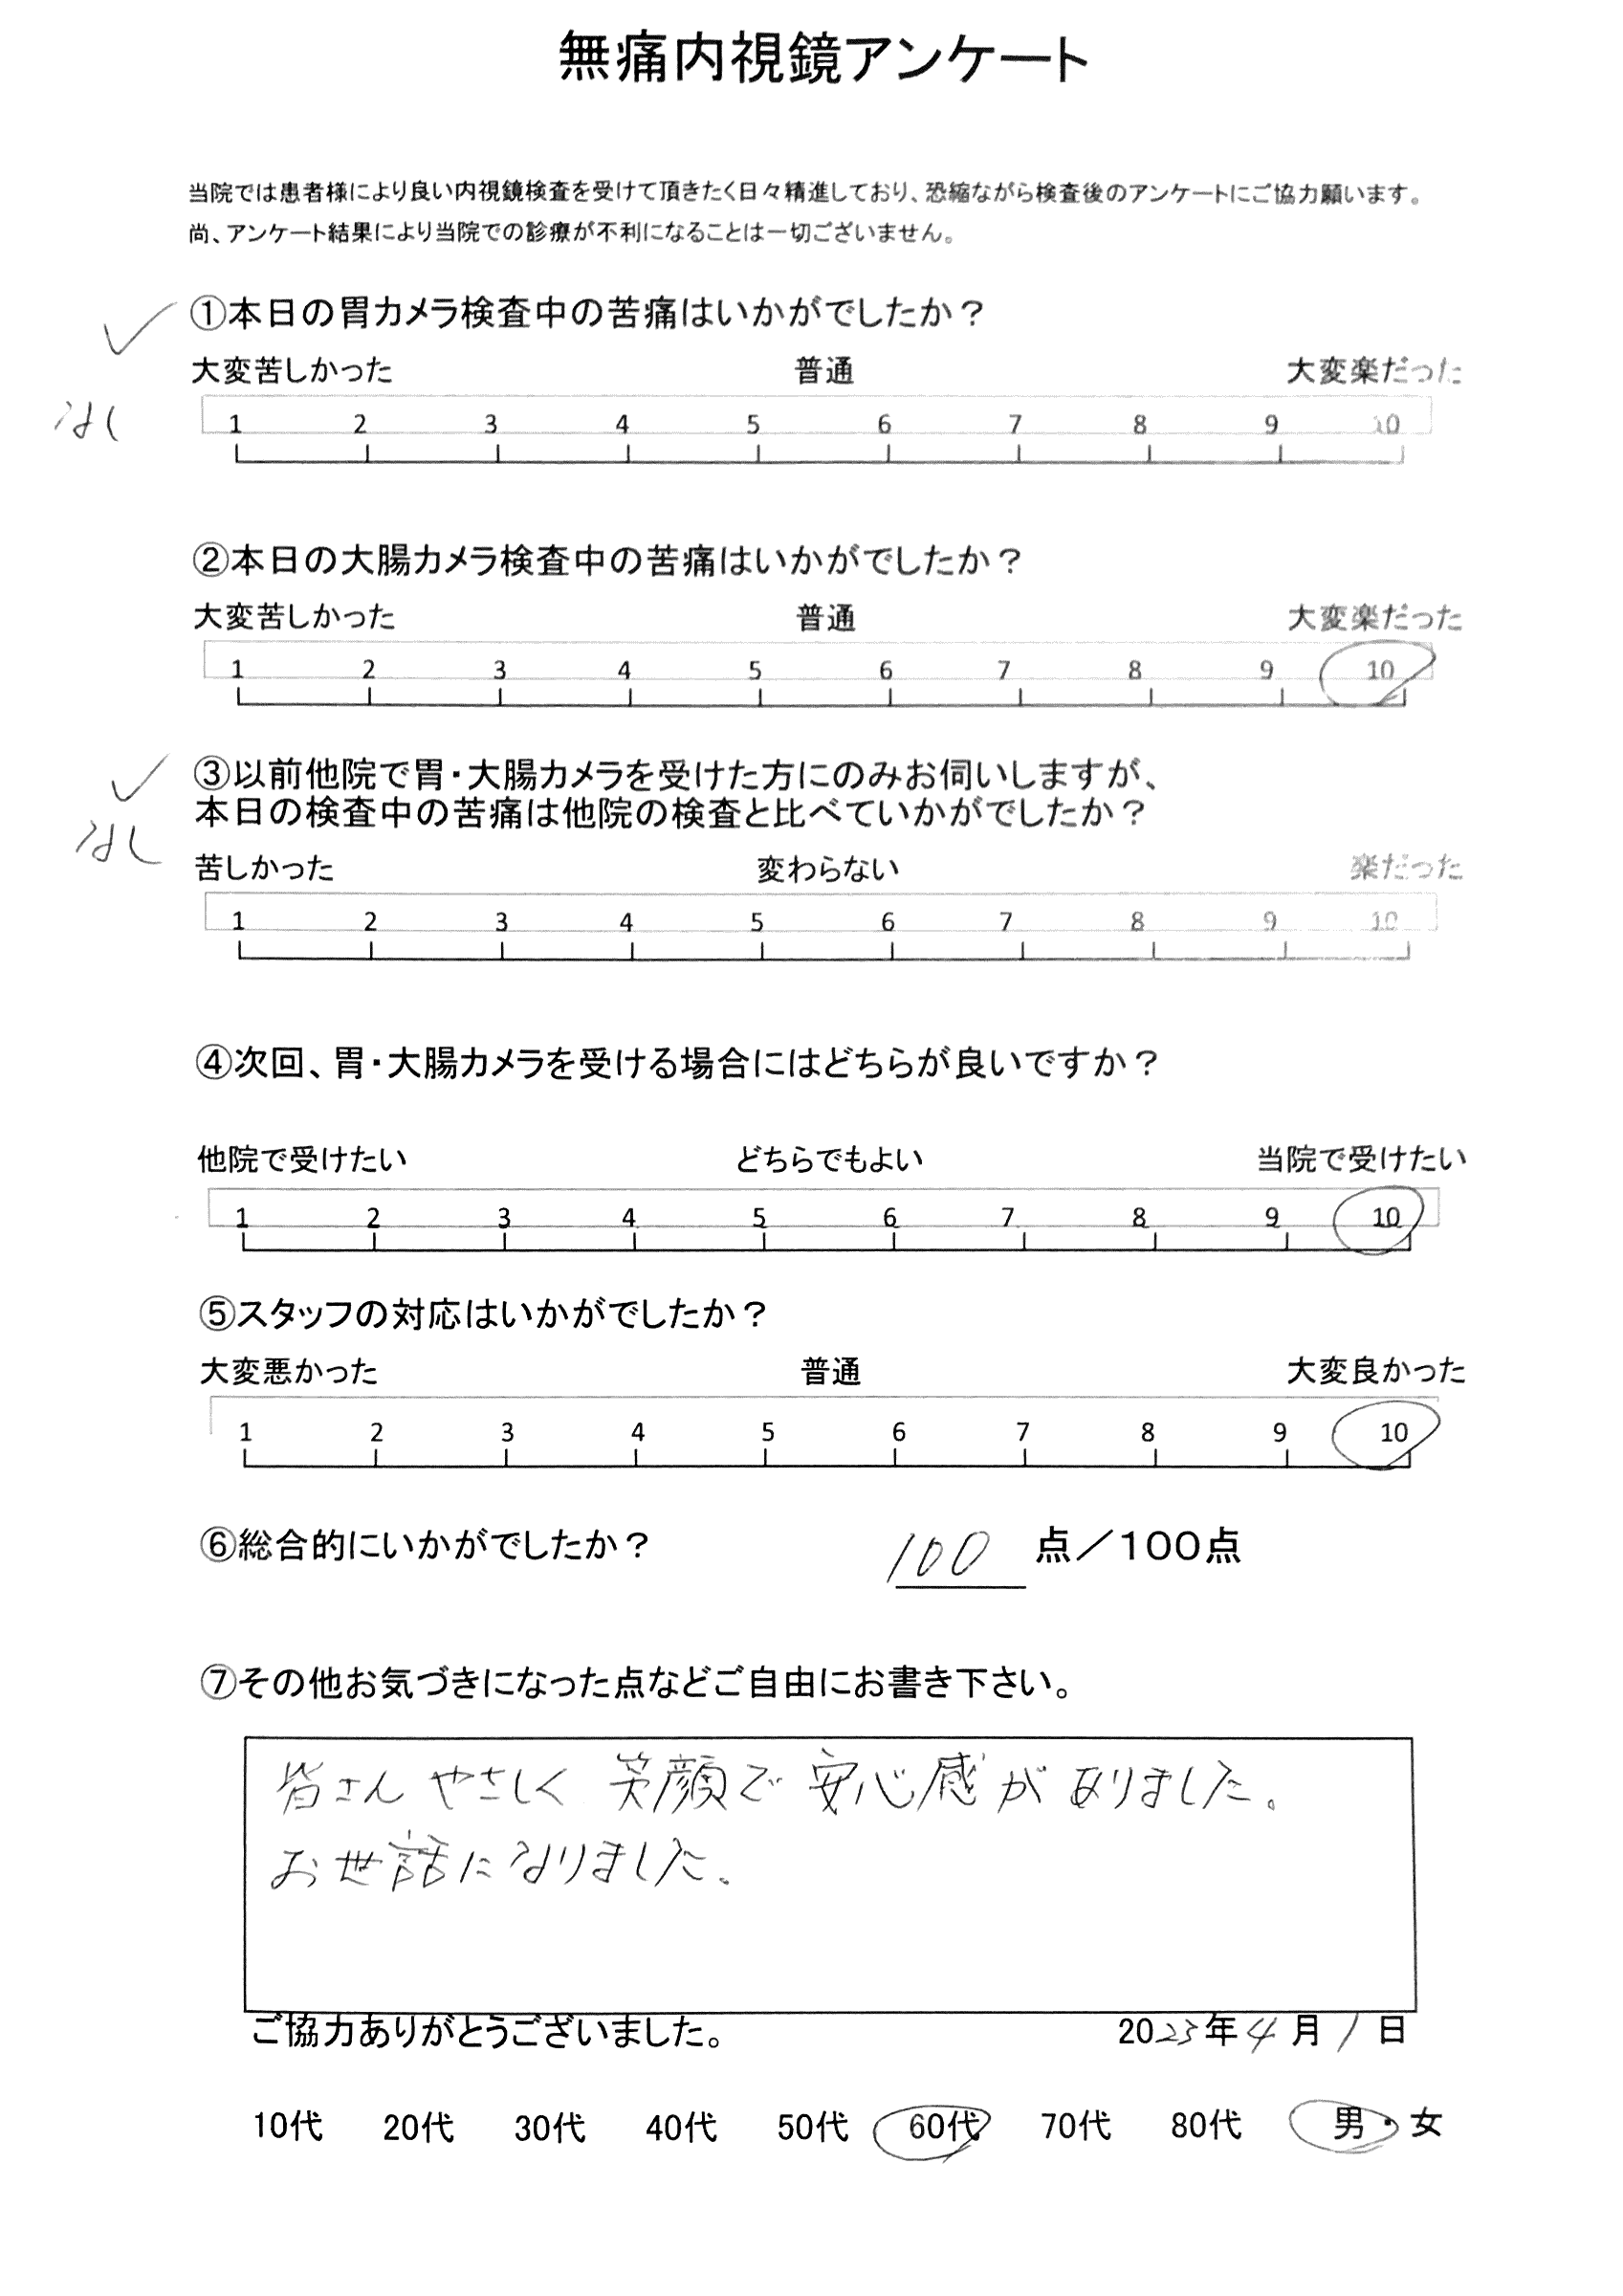 無痛内視鏡アンケート
当院では患者様により良い内視鏡検査を受けて頂きたく日々精進しており、恐縮ながら検査後のアンケートにご協力願います。
尚、アンケート結果により当院での診療が不利になることは一切ございません。
①本日の胃カメラ検査中の苦痛はいかがでしたか？
大変苦しかった 普通 大変楽だった
なし
1 2 3 4 5 6 7 8 9 10
②本日の大腸カメラ検査中の苦痛はいかがでしたか？
大変苦しかった 普通 大変楽だった
1 2 3 4 5 6 7 8 9 10
③以前他院で胃・大腸カメラを受けた方にのみお伺いしますが、
本日の検査中の苦痛は他院の検査と比べていかがでしたか？
なし
苦しかった 変わらない 楽だった
1 2 3 4 5 6 7 8 9 10
④次回、胃・大腸カメラを受ける場合にはどちらが良いですか？
他院で受けたい どちらでもよい 当院で受けたい
1 2 3 4 5 6 7 8 9 10
⑤スタッフの対応はいかがでしたか？
大変悪かった 普通 大変良かった
1 2 3 4 5 6 7 8 9 10
⑥総合的にいかがでしたか？ 100 点／100点
⑦その他お気づきになった点などご自由にお書き下さい。
皆さんやさしく笑顔で安心感がありました。
お世話になりました。
ご協力ありがとうございました。 2023年4月1日
10代 20代 30代 40代 50代 60代 70代 80代 男・女